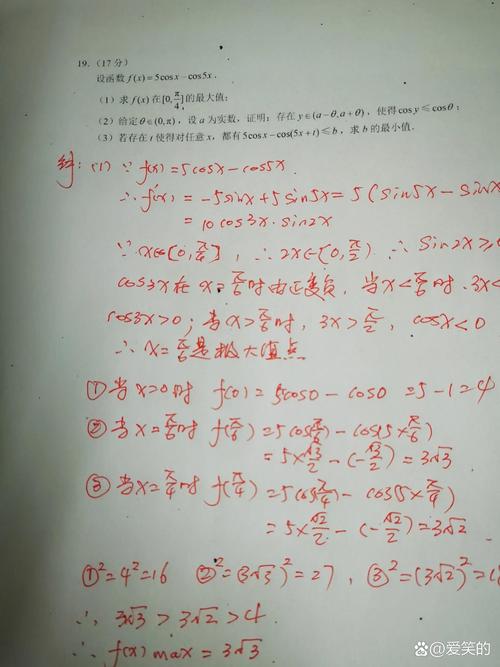 19.（17分）
设函数 f(x)=5cosx−cos5x.
（1）求 f(x) 在[0,π/4]的最大值;
（2）给定θ∈(0,π)，设 a 为实数，证明：存在 y∈(a−θ,a+θ)，使得 cosy≤cosθ;
（3）若存在 t 使得对任意 x，都有5cosx−cos(5x+t)≤b，求 b 的最小值.
(1) ∵ f(x)=5cosx−cos5x
∴ f'(x)=−5sinx+5sin5x=5(sin5x−sinx
=10cos3x·sin2x
∵ x∈[0,π/4], ∴ 2x∈[0,π/2) ∴ sin2x≥
cos3x在 x=π/6时由正变负, 当x<π/6时, 3x<
cos3x>0; 当x>π/6时, 3x>π/2, cosx<0
∴ x=π/6是极大值点
①当x=0时 f(0)=5cos0−cos0=5−1=4
②当x=π/6时 f(π/6)=5cos(π/6)−cos(5×π/6)
=5×√3/2−(−√3/2)=3√3
③当x=π/4时 f(π/4)=5cos(π/4)−cos(5×π/4)
=5×√2/2−(−√2/2)=3√2
①²=4²=16 ②²=(3√3)²=27, ③²=(3√2)²=
∴ 3√3>3√2>4
∴ f(x)max=3√3
@爱笑的